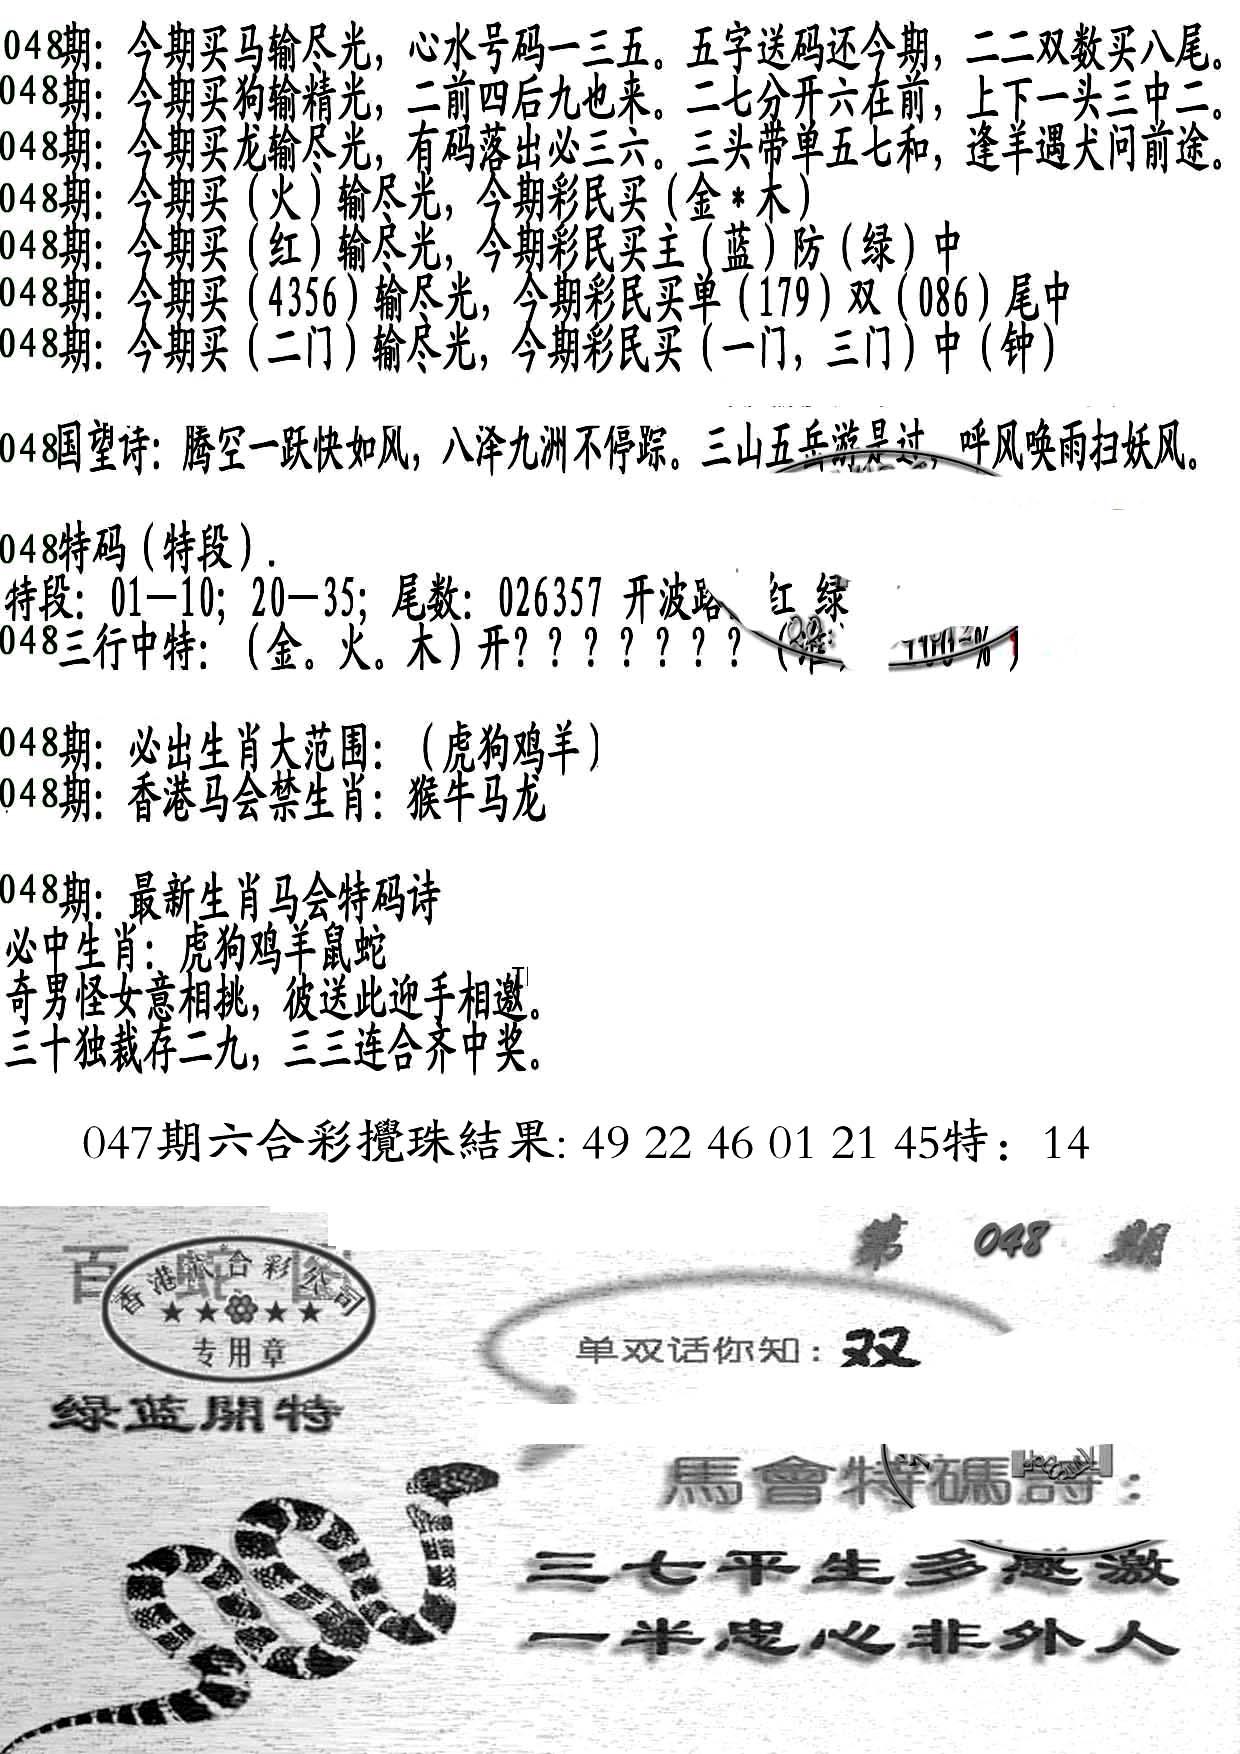 048期：今期买马输尽光，心水号码一三五。五字送码还今期，二二双数买八尾。
048期：今期买狗输精光，二前四后九也来。二七分开六在前，上下一头三中二。
048期：今期买龙输尽光，有码落出必三六。三头带单五七和，逢羊遇犬问前途。
048期：今期买（火）输尽光，今期彩民买（金*木）
048期：今期买（红）输尽光，今期彩民买主（蓝）防（绿）中
048期：今期买（4356）输尽光，今期彩民买单（179）双（086）尾中
048期：今期买（二门）输尽光，今期彩民买（一门，三门）中（钟）
048国望诗：腾空一跃快如风，八泽九洲不停踪。三山五岳游是过，呼风唤雨扫妖风。
048特码（特段）.
特段：01—10；20—35；尾数：026357 开波路 红 绿
048三行中特：（金。火。木）开？？？？？？？（准 100%）
048期：必出生肖大范围：（虎狗鸡羊）
048期：香港马会禁生肖：猴牛马龙
048期：最新生肖马会特码诗
必中生肖：虎狗鸡羊鼠蛇
奇男怪女意相挑，彼送此迎手相邀。
三十独裁存二九，三三连合齐中奖。
047期六合彩攪珠結果: 49 22 46 01 21 45特：14
第 048 期
香港六合彩公司
★★★★
专用章
单双话你知：双
绿蓝開特
馬會特碼詩：
三七平生多感激
一半忠心非外人